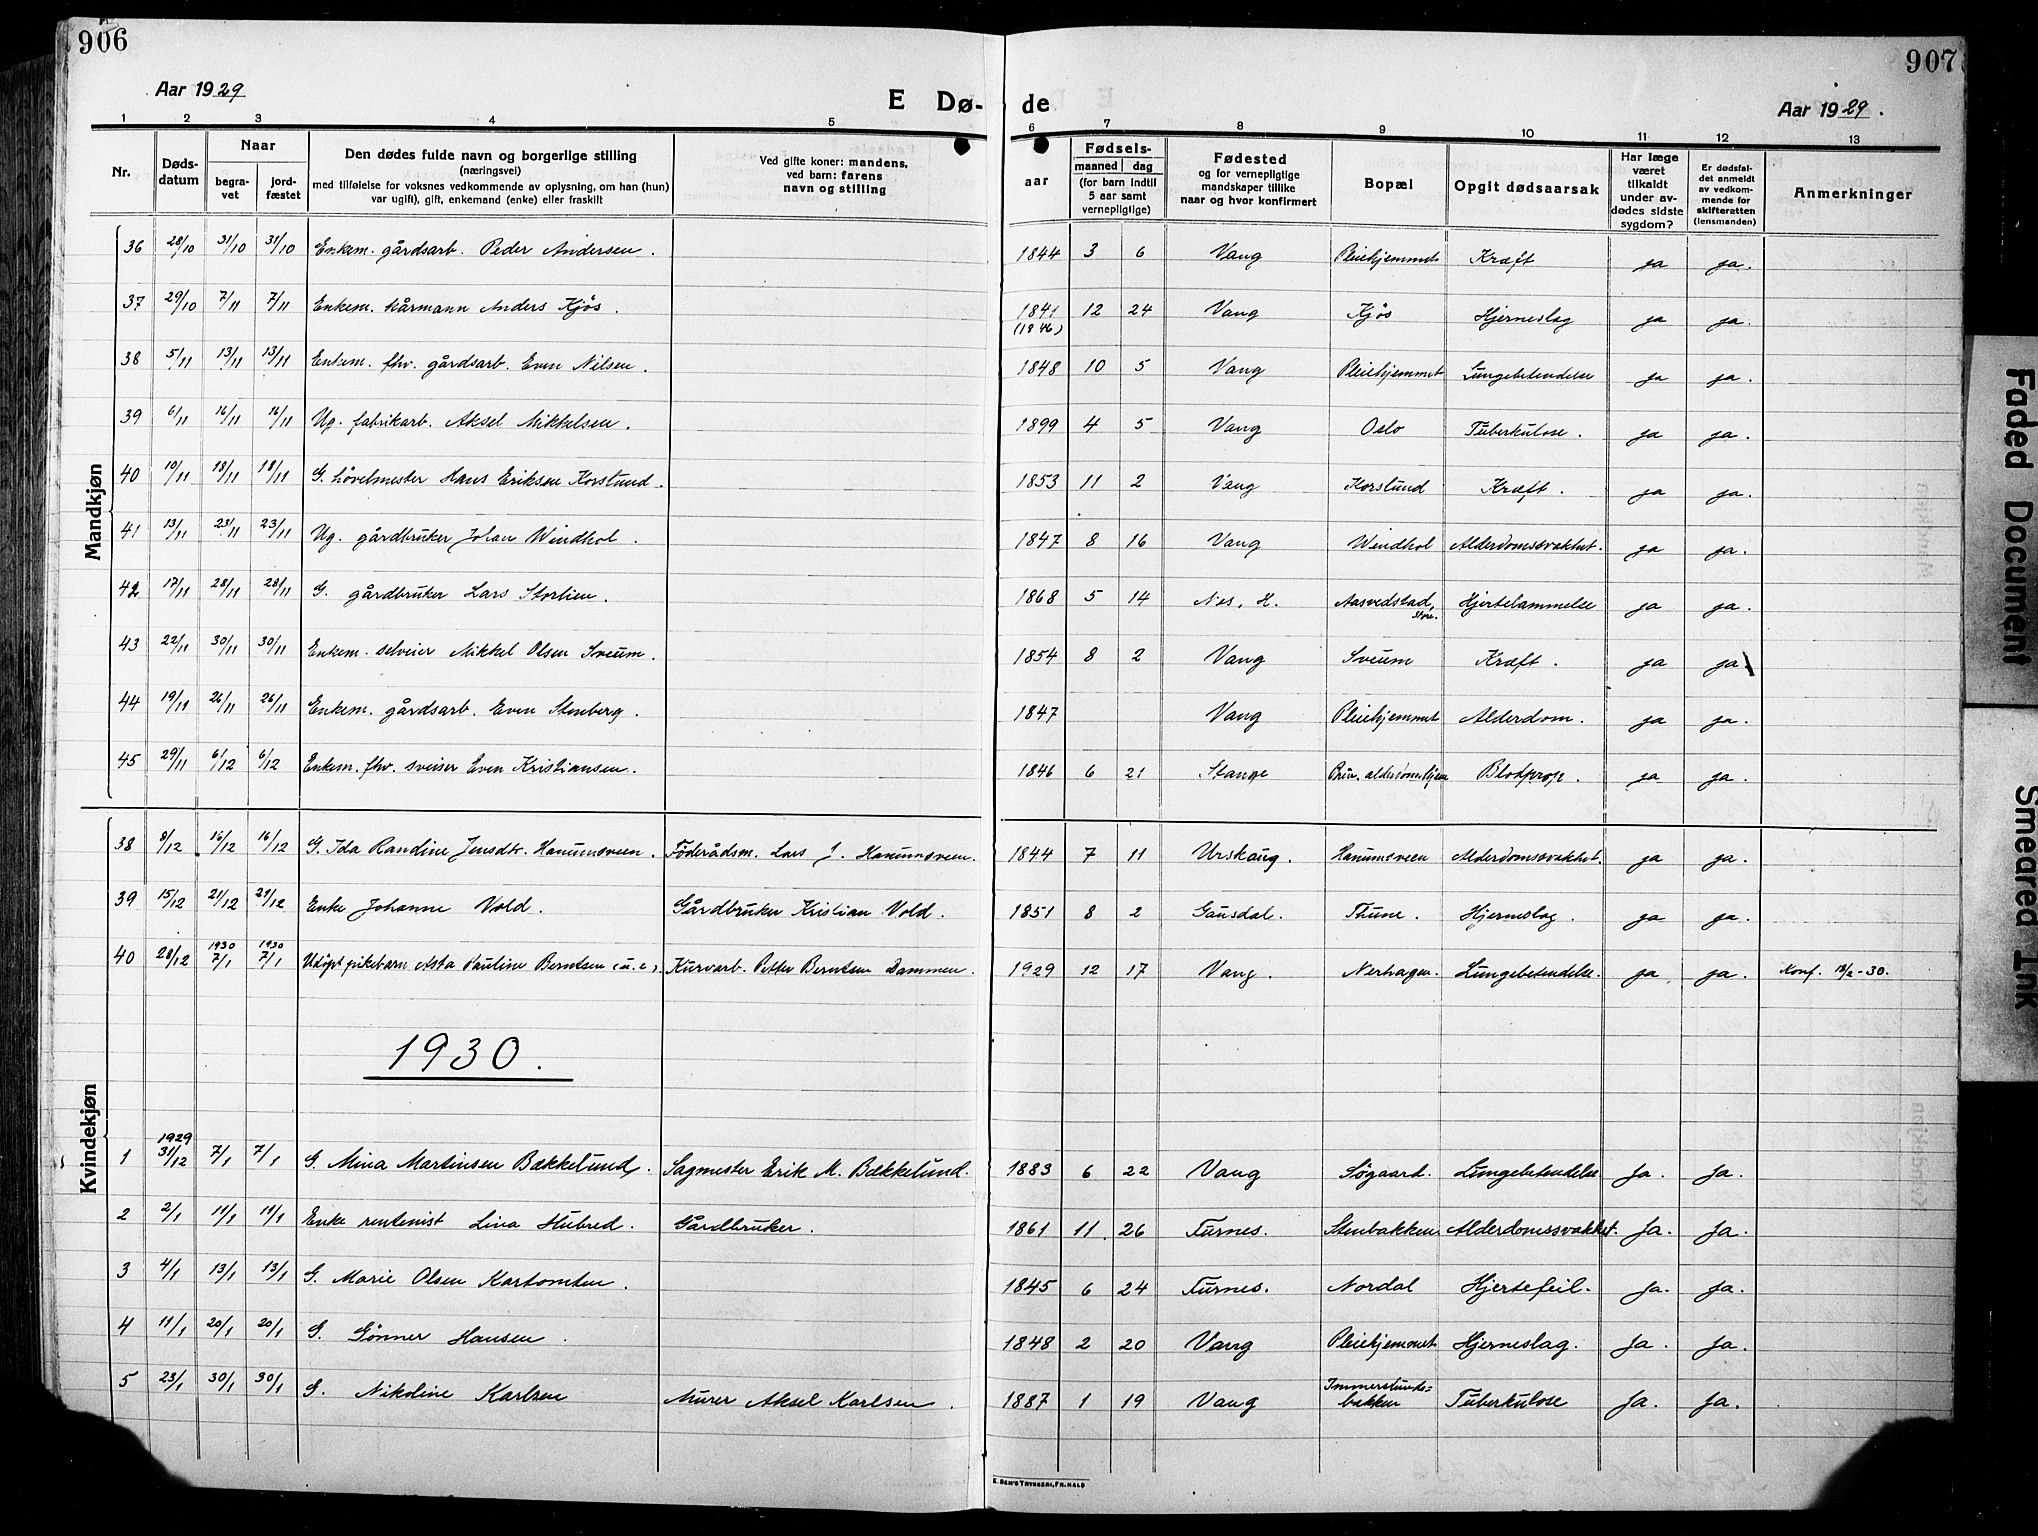 906
907
Aar 1929
E Dø-
de
Aar 1929.
1 2 3 4 5 6 7 8 9 10 11 12 13
Nr.
Døds-
datum
Naar
begra-
vet
jord-
fæstet
Den dødes fulde navn og borgerlige stilling
(næringsvei)
med tilføielse for voksnes vedkommende av oplysning, om han (hun)
var ugift), gift, enkemand (enke) eller fraskilt
Ved gifte koner: mandens,
ved barn: farens
navn og stilling
aar
Fødsels-
maaned dag
(for barn indtil
5 aar samt
vernepligtige)
Fødested
og for vernepligtige
mandskaper tillike
naar og hvor konfirmert
Bopæl
Opgit dødsaarsak
Har læge
været
tilkaldt
under av-
dødes sidste
sygdom?
Er dødsfal-
det anmeldt
av vedkom-
mende for
skifteretten
(lensmanden)
Anmerkninger
Mandkjøn
36 28/10 31/10 31/10 Enkem. gårdsarb. Peder Andersen. 1844 3 6 Vang Pleiehjemmet Kræft ja ja.
37 29/10 7/11 7/11 Enkem. kårmann Anders Kjøs. 1841 12 24 Vang Kjøs Hjerneslag ja ja.
(1846)
38 5/11 13/11 13/11 Enkem. fhv. gårdsarb. Even Nilsen. 1848 10 5 Vang Pleiehjemmet Lungebetendelse ja ja.
39 6/11 16/11 16/11 Ug. fabrikarb. Aksel Mikkelsen. 1899 4 5 Vang Oslo Tuberkulose. ja ja.
40 10/11 18/11 18/11 G. høvelmester Hans Eriksen Korslund. 1853 11 2 Vang Korslund Kræft. ja ja.
41 13/11 23/11 23/11 Ug. gårdbruker Johan Windhol. 1847 8 16 Vang Windhol Alderdomssvakhet. ja ja.
42 17/11 28/11 28/11 G. gårdbruker Lars Storlien. 1868 5 14 Nes, H. Aasvedstad, Hjertelammelse ja ja.
store.
43 22/11 30/11 30/11 Enkem. selveier Mikkel Olsen Sveum. 1854 8 2 Vang Sveum Kræft. ja ja
44 19/11 26/11 26/11 Enkem. gårdsarb. Even Stenberg. 1847 Vang Pleiehjemmet Alderdom. ja ja.
45 29/11 6/12 6/12 Enkem. fhv. sveiser Even Kristiansen. 1846 6 21 Stange Priv. aldersomshjem Blodprop. ja ja.
Kvindekjøn
38 8/12 16/12 16/12 G. Ida Randine Jensdtr. Hanumsveen. Føderådsm. Lars J. Hanumsveen. 1844 7 11 Urskoug. Hanumsveen Alderdomssvakhet. ja ja.
39 15/12 21/12 21/12 Enke Johanne Vold. Gårdbruker Kristian Vold. 1851 8 2 Gausdal. Thune. Hjerneslag. ja ja.
1930 1930
40 28/12 7/1 7/1 Udøpt pikebarn Asta Pauline Berntsen (u.e). Kurvarb. Petter Berntsen Dammen. 1929 12 17 Vang. Nerhagen. Lungebetendelse. ja ja. Konf. 18/2-30.
1930.
1929
1 31/12 7/1 7/1 G. Mina Martinsen Bækkelund. Sagmester Erik M. Bækkelund. 1883 6 22 Vang Søgaard. Lungebetendelse Ja. Ja.
2 2/1 11/1 11/1 Enke rentenist Lina Hubred. Gårdbruker. 1861 11 26 Furnes. Stenbakken Alderdomssvakhet. Ja. Ja.
3 4/1 13/1 13/1 G. Marie Olsen Kartomten. 1845 6 24 Furnes. Nordal Hjertefeil. Ja. Ja.
4 11/1 20/1 20/1 G. Gønner Hansen. 1848 2 20 Vang Pleiehjemmet Hjerneslag. Ja. Ja.
5 23/1 30/1 30/1 G. Nikoline Karlsen Murer Aksel Karlsen. 1887 1 19 Vang Immerslunds= Tuberkulose Ja. Ja.
bakken
E. SEM'S TRYKKERI, FR.HALD
Faded Document
Smeared Ink